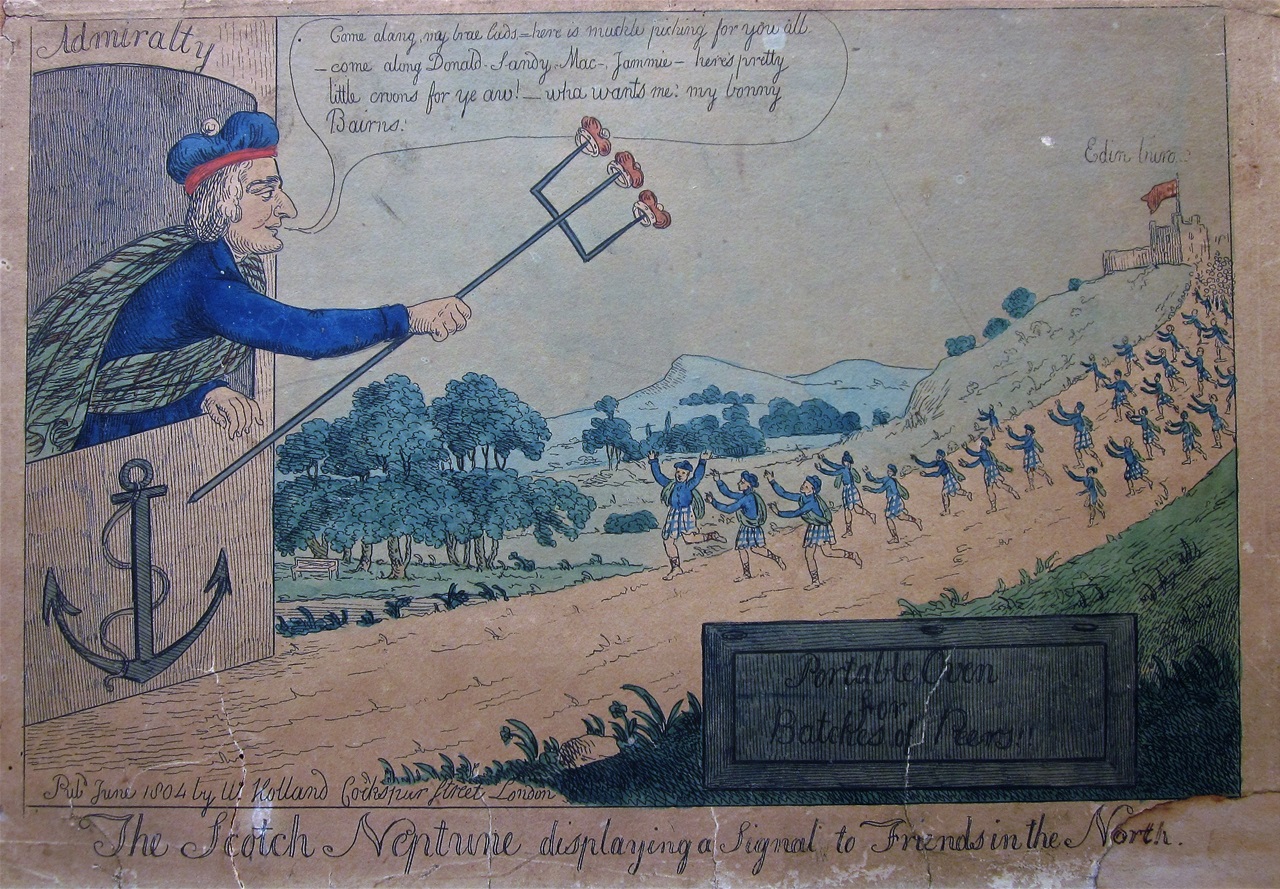 Admiralty
Come alang, my brae lads = here is muckle picking for you all.
– come along Donald - Sandy - Mac -, Jammie – here's pretty
little crvons for ye aw! – wha wants me: my bonny
Bairns.
Edinburo
Portable Oven
for
Batches of Peers!!
Pub June 1804 by W Holland Cockspur Street London
The Scotch Neptune displaying a Signal to Friends in the North.